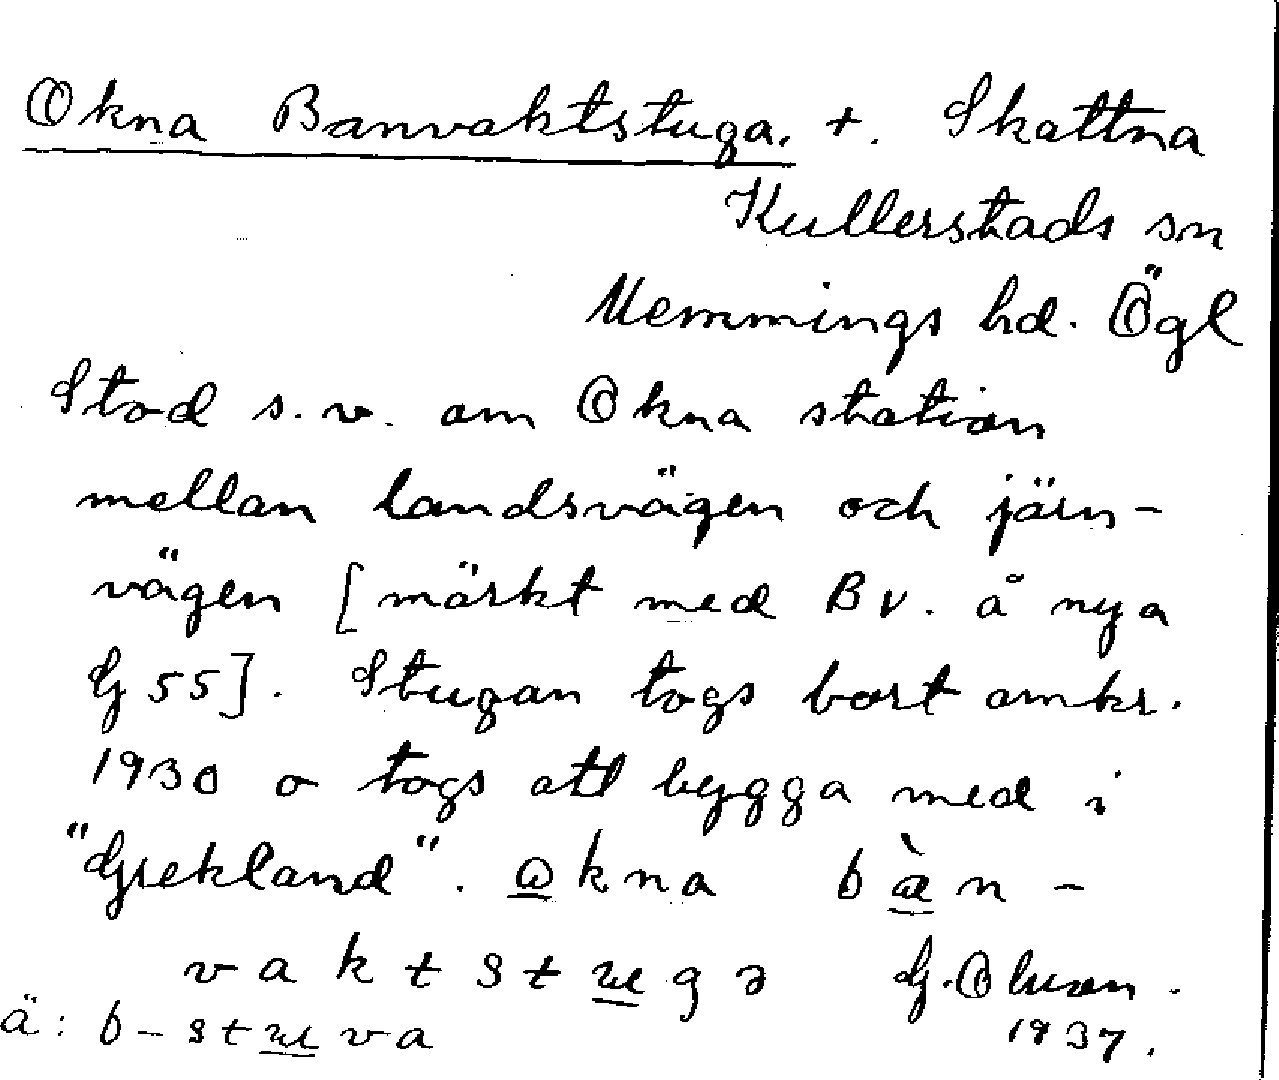 Okna Banvaktstuga. +. Skattna
Kullerstads sn
Memmings hd. Ögl
Stod s.v. om Okna station
mellan landsvägen och järn-
vägen [märkt med BV. å nya
G 55]. Stugan togs bort omkr.
1930 o togs att bygga med i
"Grekland". okna bàn-
vaktstugə G.
ä: b-stuva 1937.